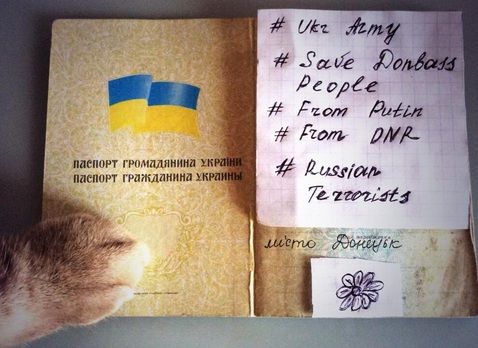 ПАСПОРТ ГРОМАДЯНИНА УКРАЇНИ
ПАСПОРТ ГРАЖДАНИНА УКРАИНЫ
# Ukr Army
# Save Donbass
People
# From Putin
# From DNR
# Russian
Terrorists
місто Донецьк